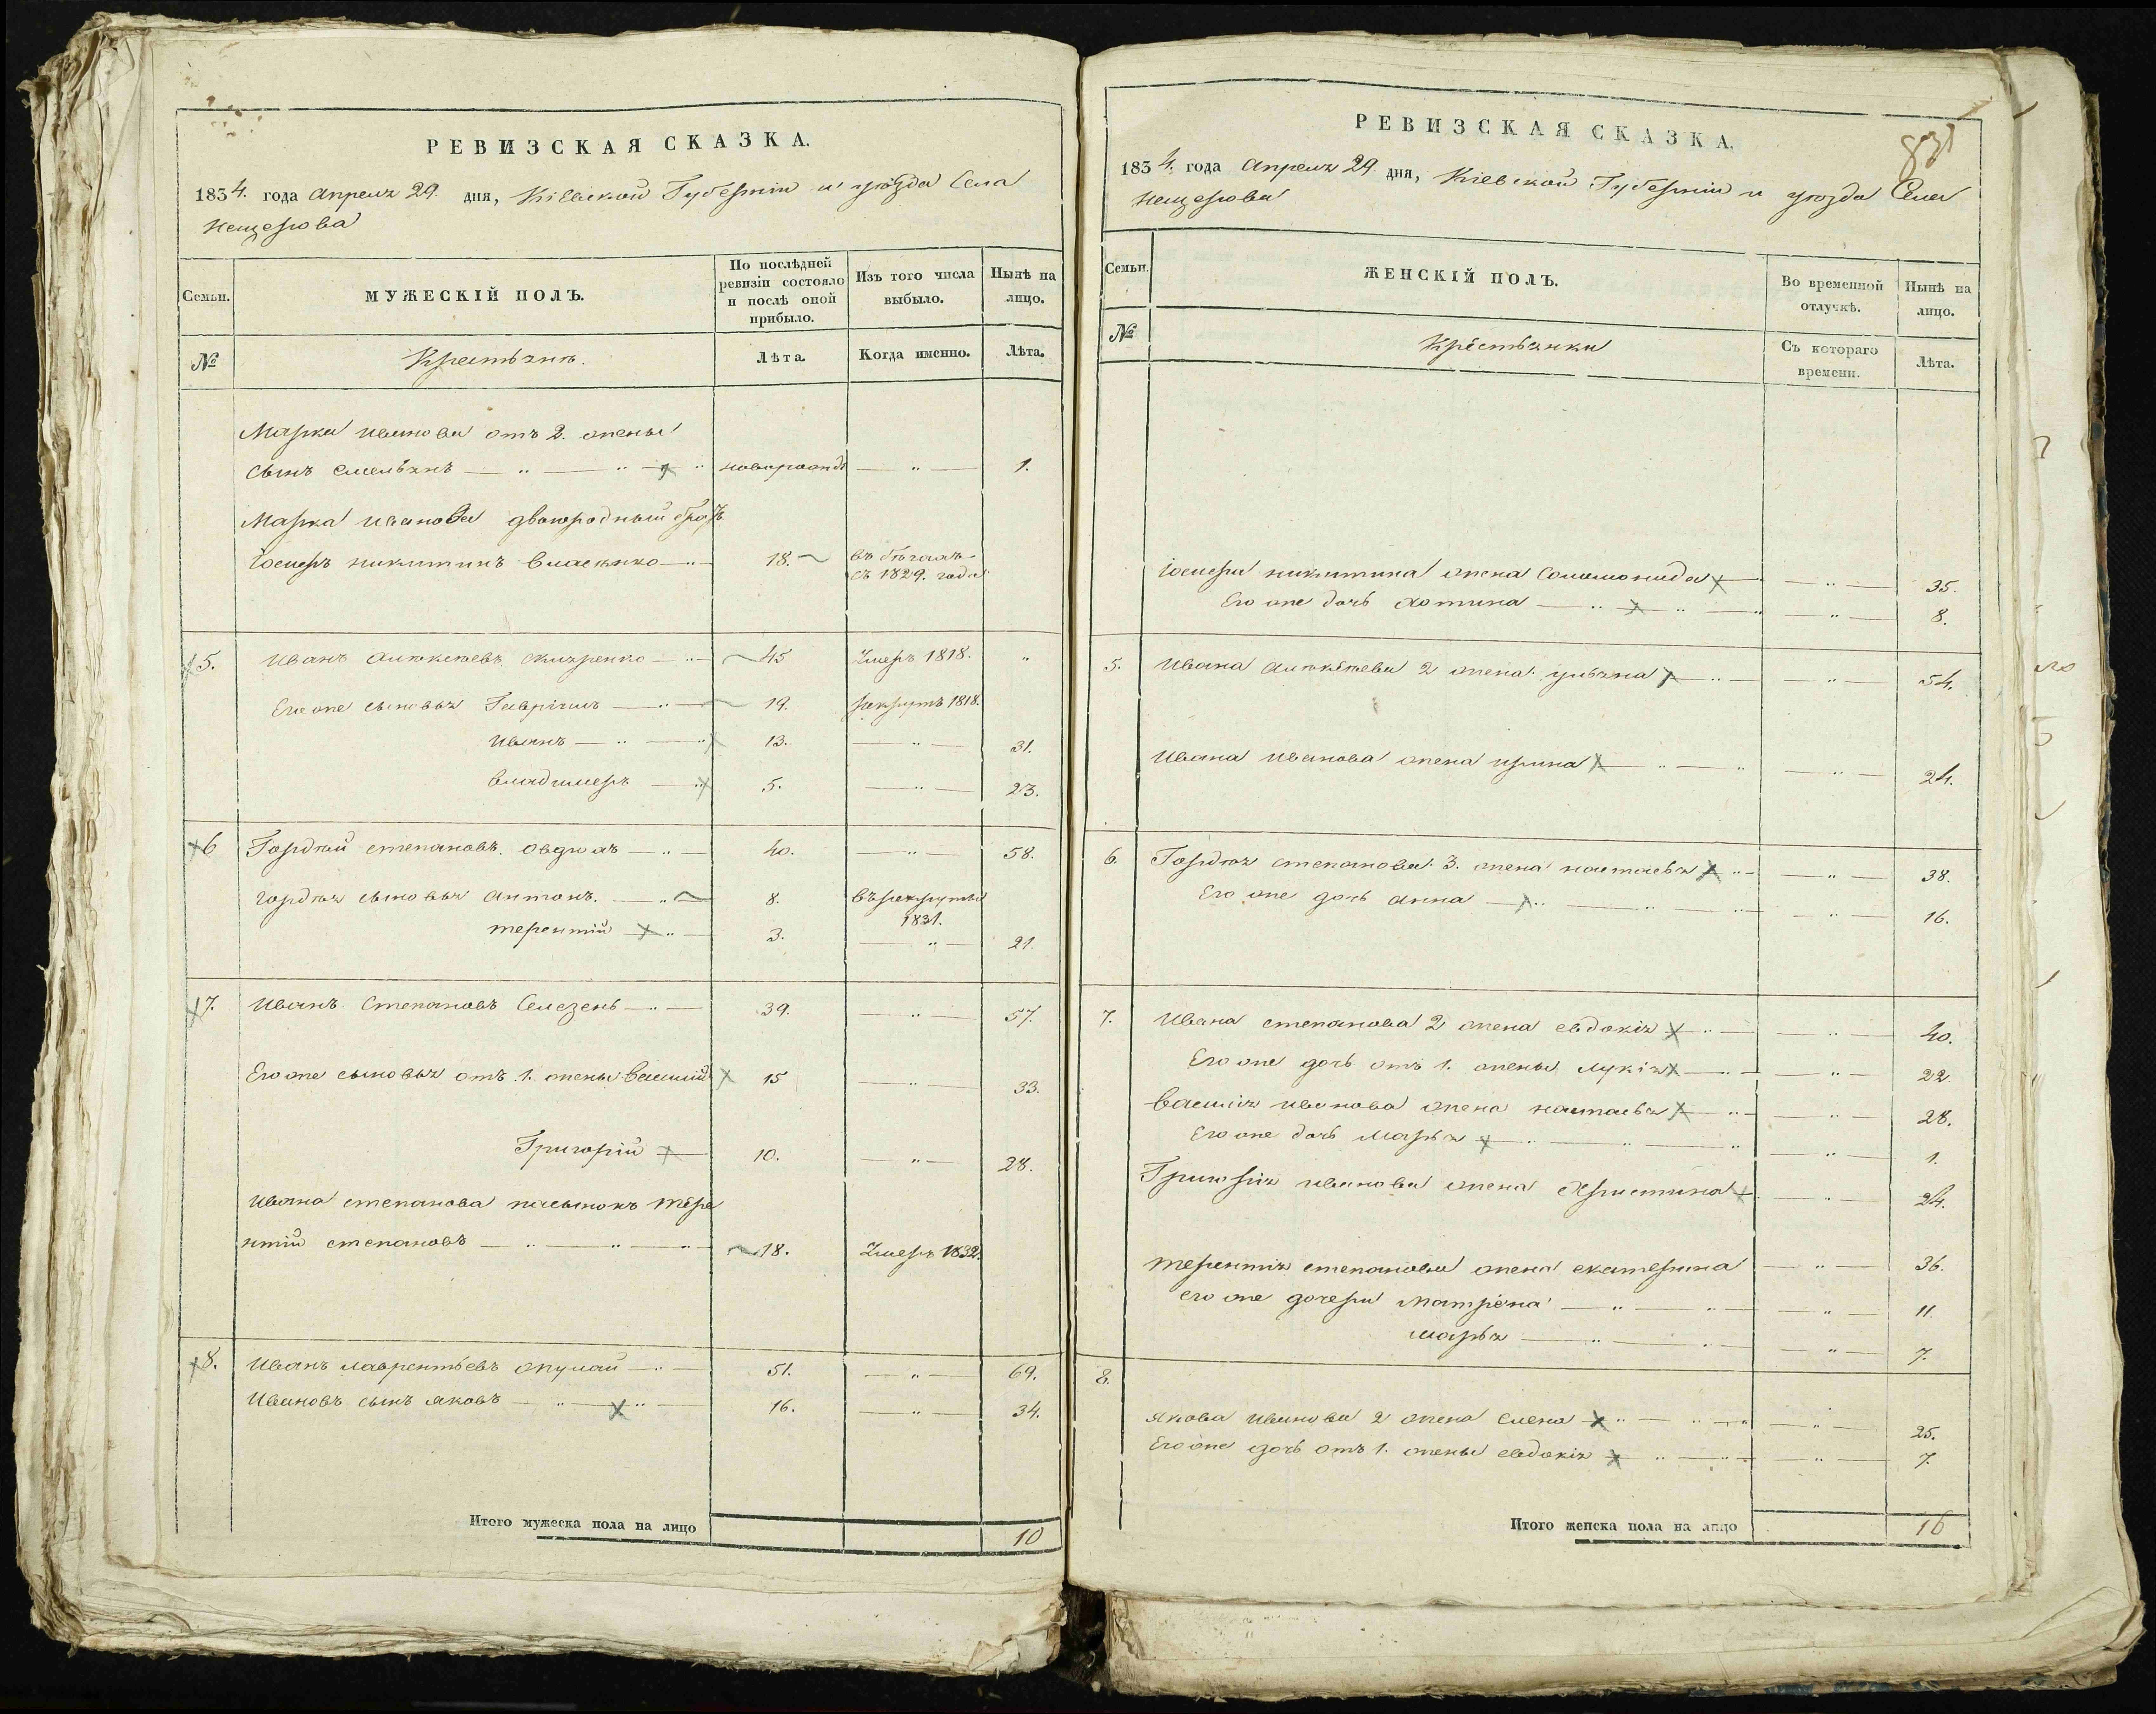 РЕВИЗСКАЯ СКАЗКА.
1834. года Апреля 29. дня, Кіевской Губерніи и уѣзда Села
Нещерова
Семьи. МУЖЕСКІЙ ПОЛЪ. По послѣдней ревизіи состояло и послѣ оной прибыло. Изъ того числа выбыло. Нынѣ на лицо.
№ Крестьянѣ. Лѣта. Когда именно. Лѣта.
Марка иванова отъ 2. жены
сынъ емельянъ — " — " — " новорожд — " — 1.
Марка иванова двоюродный братъ
Іосифъ никитинъ Власенко — " — 18. въ бѣгахъ
съ 1829. года
5. Иванъ Алексѣевъ — " — 45 Умеръ 1818. "
Его же сыновья Гавріилъ — " — 19. рекрутъ 1818.
Иванъ — " — " 13. — " — 31.
владимеръ — " 5. — " — 23.
6 Гордѣй степановъ — " — 40. — " — 58.
гордѣя сыновья антонъ. — " 8. въ рекруты
1831.
терентій — " — 3. — " — 21.
7. Иванъ Степановъ Селезень — " — 39. — " — 57.
Его же сыновья отъ 1. жены Василій 15 — " — 33.
Григорій — 10. — " — 28.
Ивана степанова пасынокъ тере
нтій степановъ — " — " — " — 18. Умеръ 1832.
8. Иванъ лаврентьевъ — " — 51. — " — 69.
Ивановъ сынъ яковъ — " — " — 16. — " — 34.
Итого мужеска пола на лицо 10
РЕВИЗСКАЯ СКАЗКА.
1834. года Апреля 29. дня, Кіевской Губерніи и уѣзда Села
Нещерова
Семьи. ЖЕНСКІЙ ПОЛЪ. Во временной отлучкѣ. Нынѣ на лицо.
№ Крестьянки Съ котораго времени. Лѣта.
Іосифа никитина жена Соломонида — — " — 35.
Его же дочь — " — " — — " — 8.
5. Ивана Алексѣева 2 жена ульяна — " — — " — 54.
Ивана иванова жена ирина — " — " — " — 24.
6. Гордѣя степанова 3. жена настасья — " — — " — 38.
Его же дочь анна — " — " — — " — 16.
7. Ивана степанова 2 жена евдокія — " — — " — 40.
Его же дочь отъ 1. жены лукія — " — — " — 22.
Василія иванова жена настасья — " — — " — 28.
Его же дочь марья — " — " — " — " — 1.
Григорія иванова жена Христина — — " — 24.
терентія степанова жена екатерина — " — 36.
его же дочери матрёна — " — " — — " — 11.
марья — " — " — — " — 7.
8.
якова иванова 2 жена елена — " — " — " — " — 25.
Его же дочь отъ 1. жены евдокія — " — " — — " — 7.
Итого женска пола на лицо 16